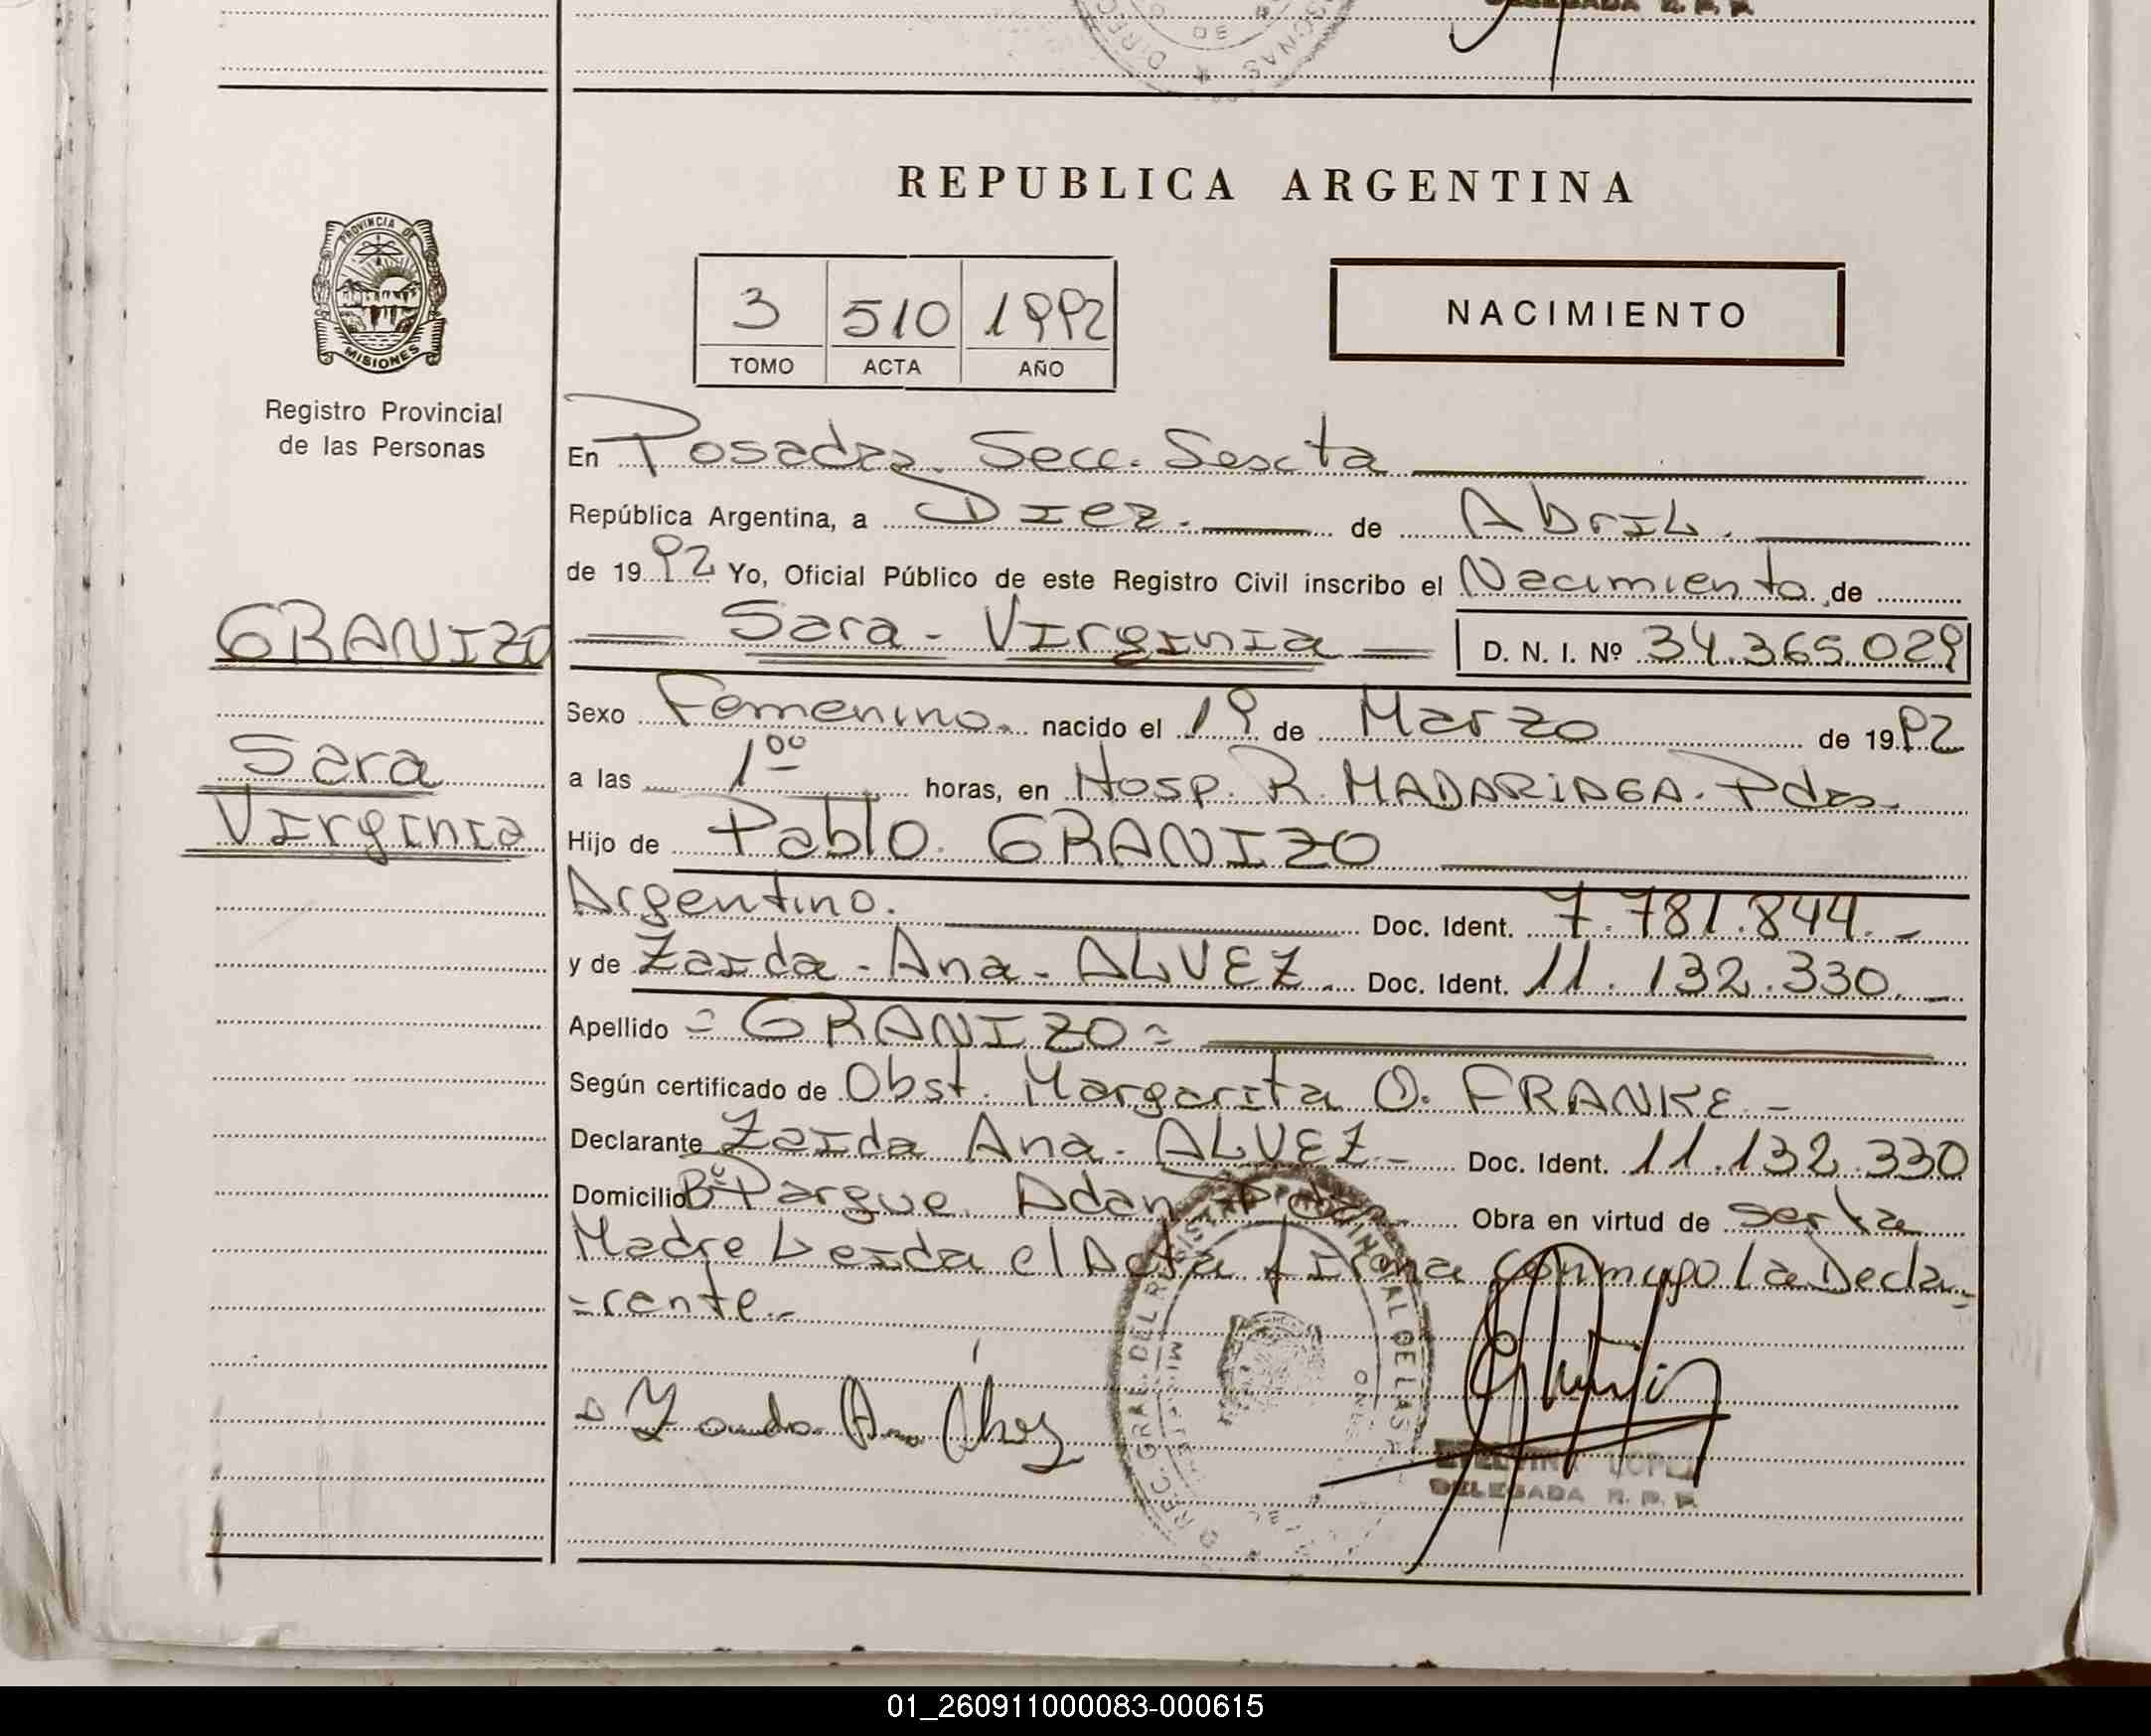 DELEGADA R. P. P.
REPUBLICA ARGENTINA
PROVINCIA DE
MISIONES
3 510 1992
TOMO ACTA AÑO
NACIMIENTO
Registro Provincial
de las Personas
En Posadas. Secc. Sexta
República Argentina, a Diez. de Abril.
de 1992 Yo, Oficial Público de este Registro Civil inscribo el Nacimiento de
GRANIZO
Sara - Virginia D. N. I. Nº 34.365.029
Sexo Femenino. nacido el 19 de Marzo de 1992
Sara
Virginia
a las 1⁰⁰ horas, en Hosp. R. MADARIAGA. Pdas.
Hijo de Pablo. GRANIZO
Argentino. Doc. Ident. 7.781.844.-
y de Zaida - Ana - ALVEZ. Doc. Ident. 11.132.330.-
Apellido = GRANIZO =
Según certificado de Obst. Margarita O. FRANKE -
Declarante Zaida Ana. ALVEZ - Doc. Ident. 11.132.330
Domicilio Bº Parque Adan Pdas. Obra en virtud de ser la
Madre Leida el Acta firma conmigo la Decla-
=rante.-
Zaida Ana Alvez
DIREC. GRAL. DEL REGISTRO PROVINCIAL DE LAS
LOPEZ
DELEGADA R. P. P.
01_260911000083-000615